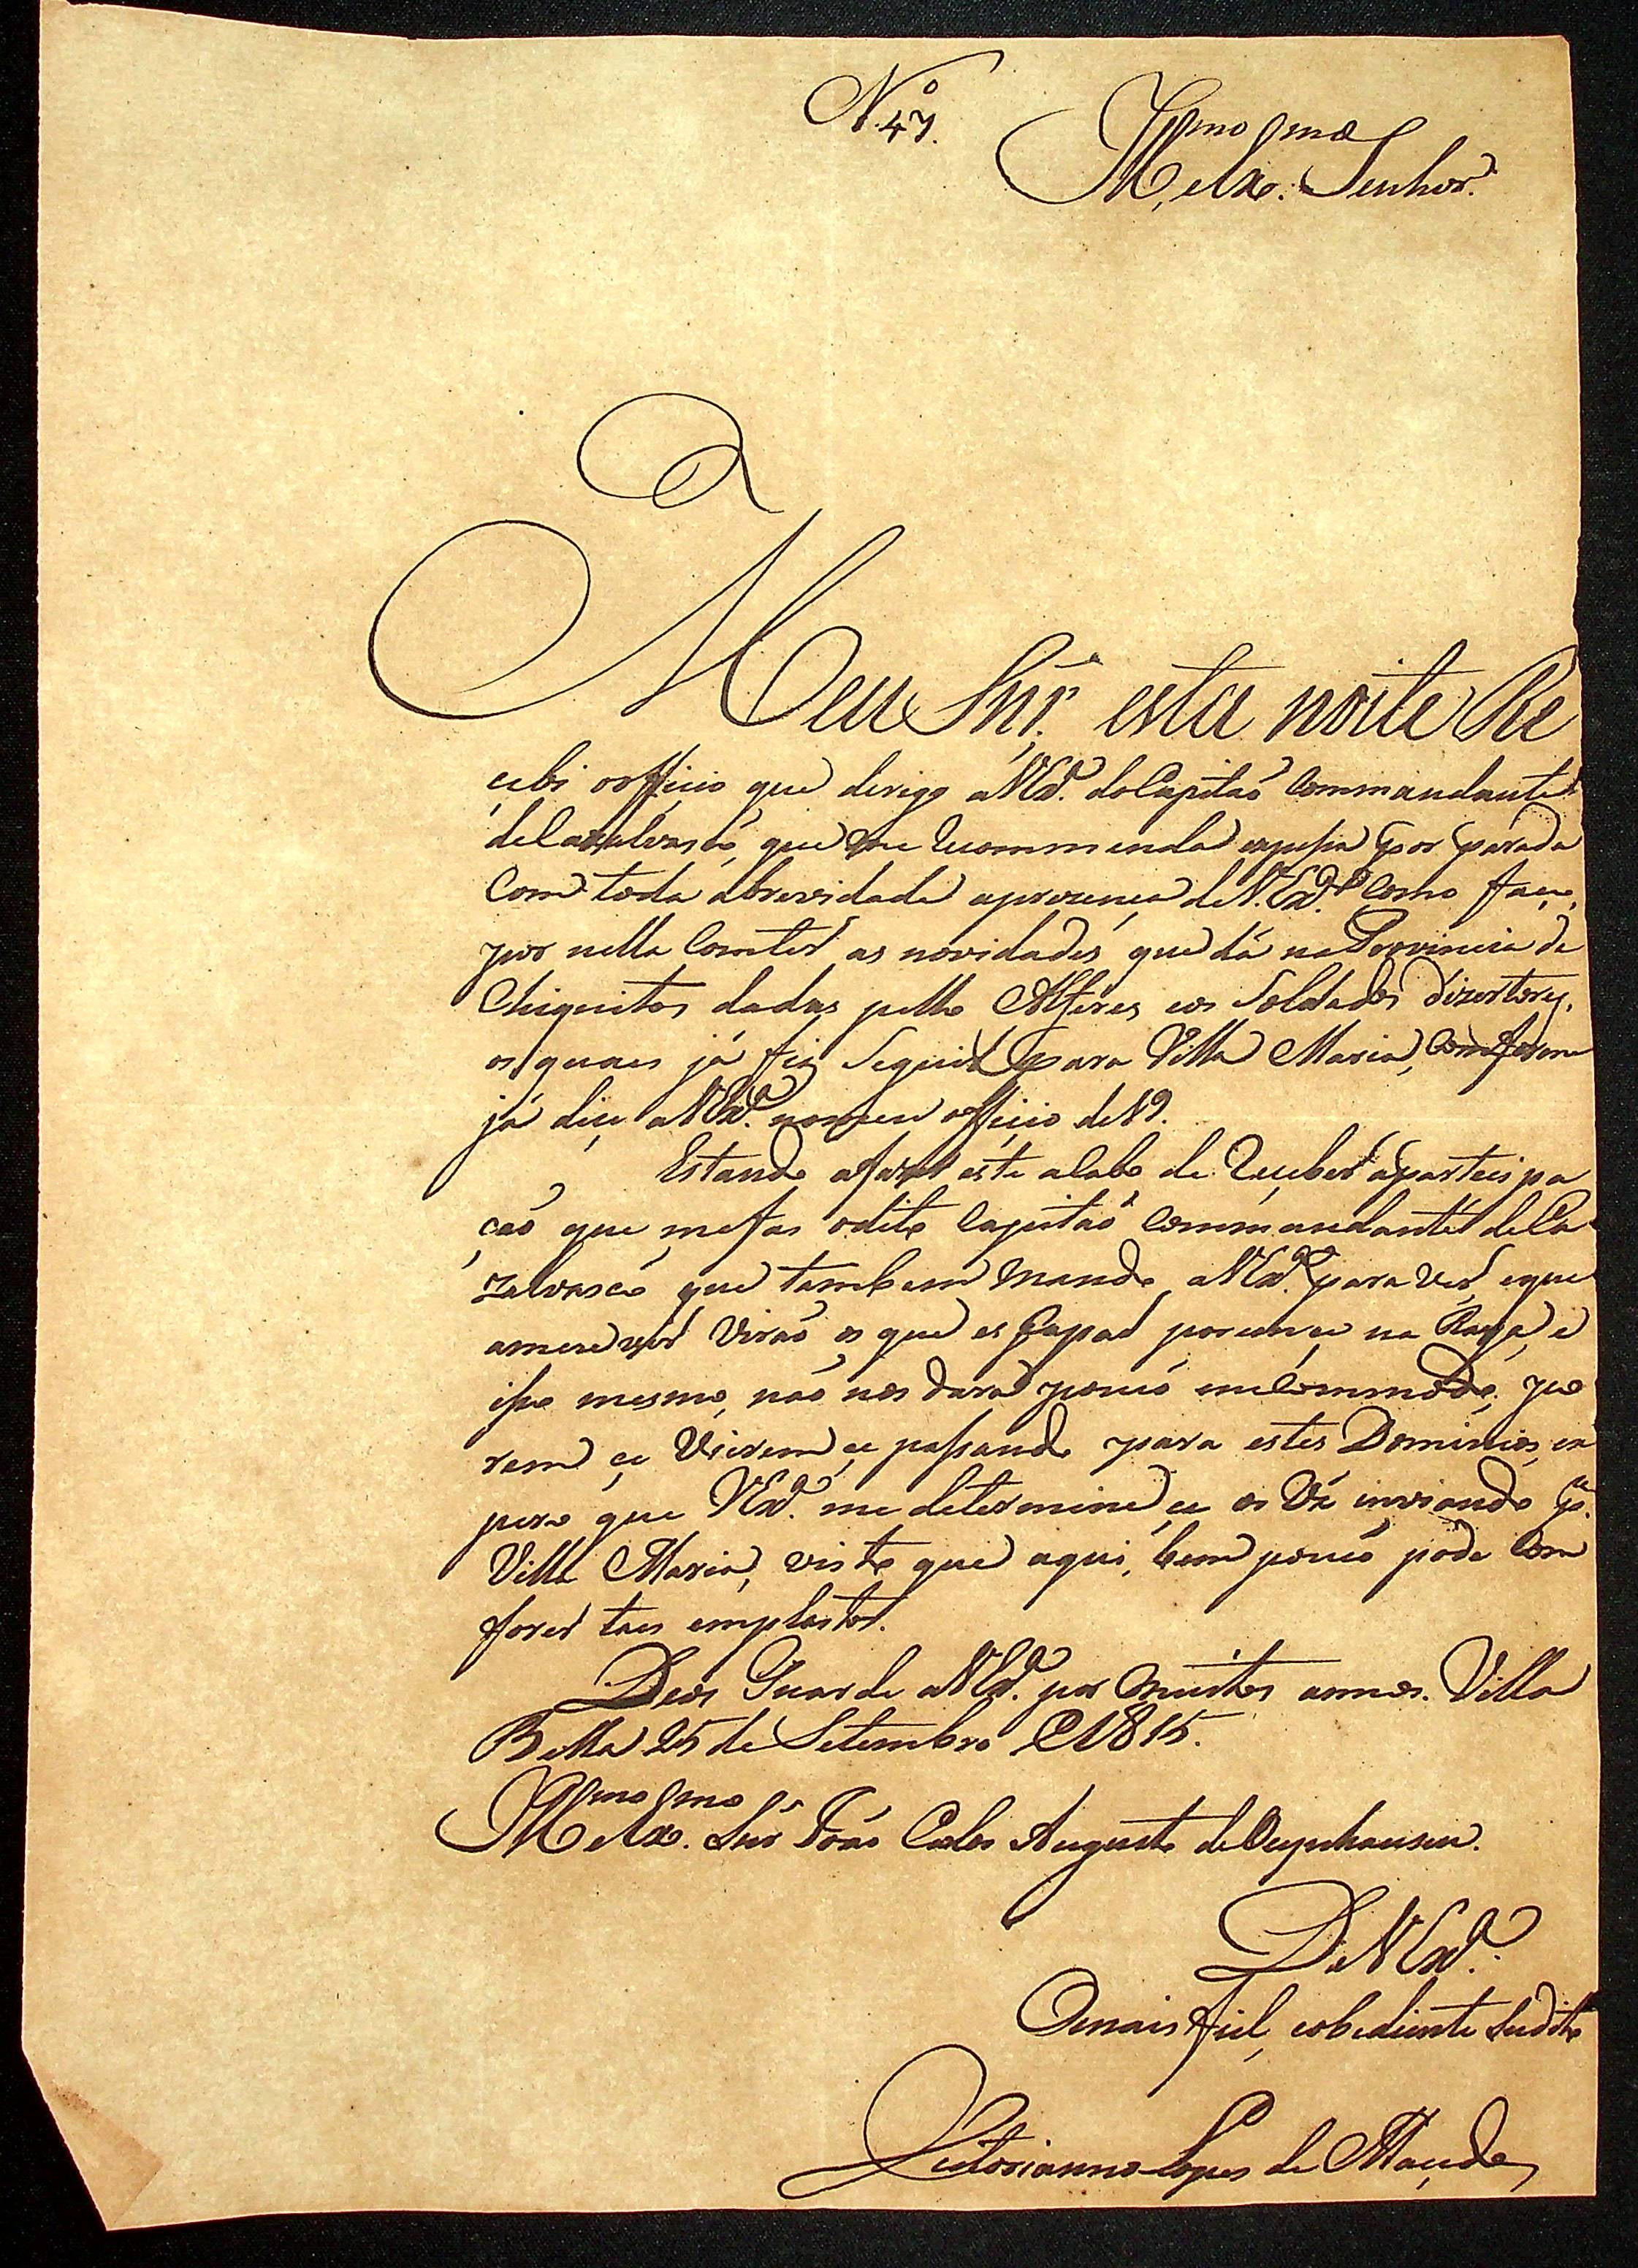 N.º 47.
Ill.mo e Ex.mo Senhor.
Meu Snr. esta noite Re
cebi o officio que dirige a V Ex.ª do Capitaõ Commandante
de Cazalvasco, que me recommenda expessa por parada
com toda abrevidade aprezença de V. Ex.ª como faço,
por nella Conter as novidades que dá na Provincia de
Chiquitos dadas pello Alferes e os Soldados dizertores,
os quaes já fiz Seguir para Villa Maria, Comforme
já dice a V Ex.ª no meu officio de 19.
Estando a fazer este acabo de receber aparteicipa
çaõ que me fas o dito Capitaõ Commandante de Ca
zalvasco que tambem mando a V Ex.ª para ver, e que
a meu ver Viraõ os que escapar por cauza na Raya, e
isso mesmo, naõ nos dará pouco emcommodo; po
rem ce Vierem ce passando para estes Dominios, es
pero que V Ex.ª me determine, ce os Vá inviando p.ª
Villa Maria, visto que aqui, bem pouco pode Com
forer taes emplastos.
Deos Guarde a V Ex.ª por muitos annos. Villa
Bella 25 de Setembro de 1815.
Ill.mo e Ex.mo Snr. Joaõ Carlos Augusto de Oeynhausen.
De V Ex.ª
O mais fiel, e obediente Sudito
Victorianno Lopes de Macedo